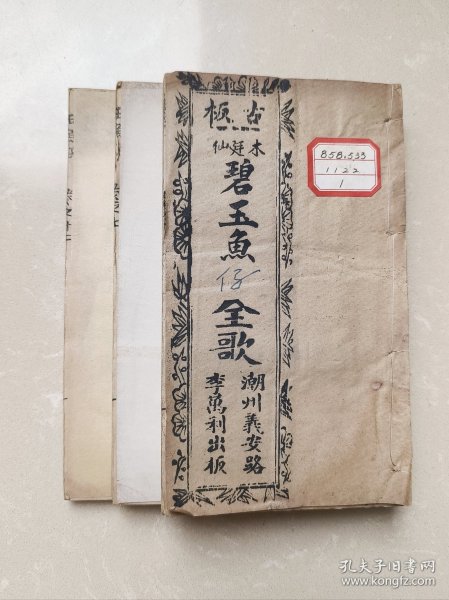 古板
木廷仙
碧玉魚仔全歌
潮州義安路
李萬利出板
858.533
1122
1
孔夫子旧书网
http://www.kongfz.com